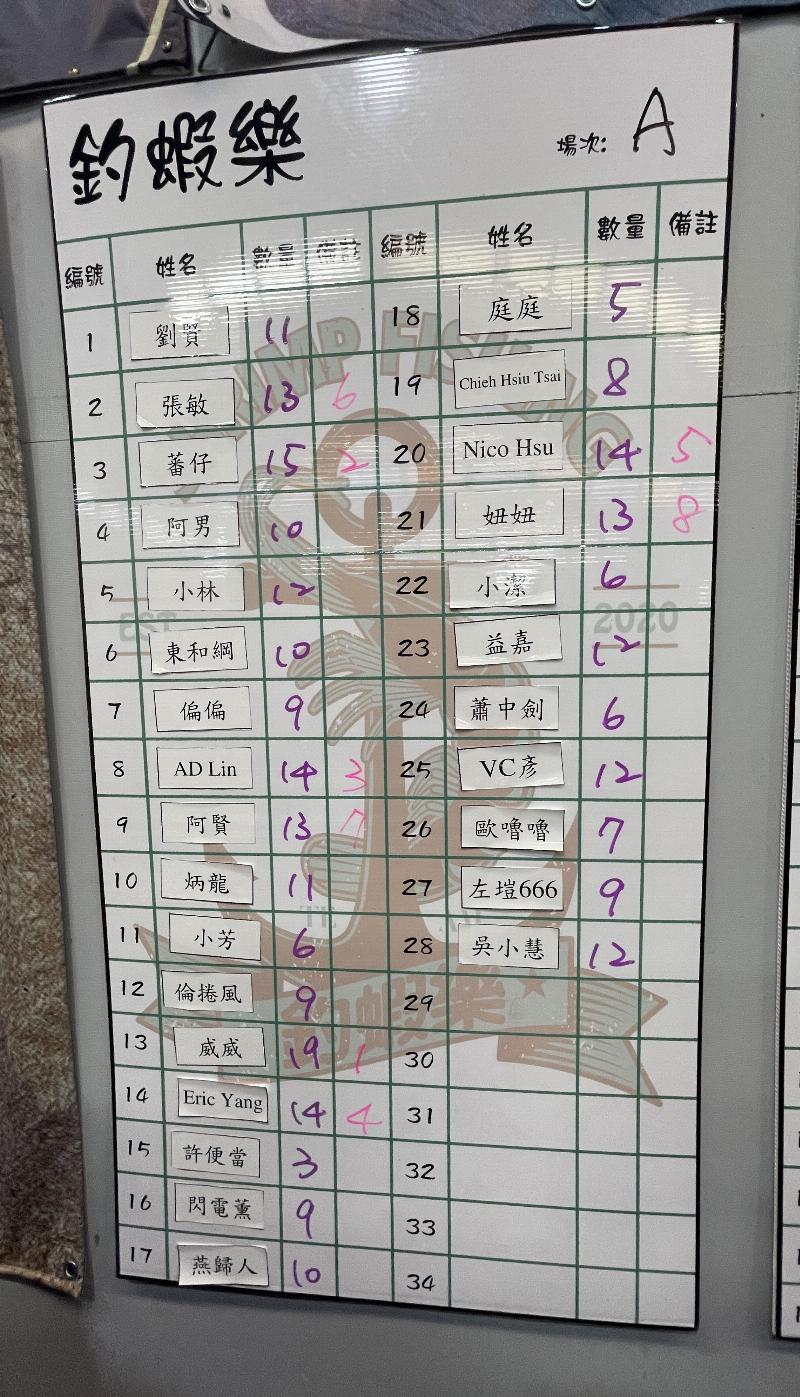 釣蝦樂 場次: A
編號 姓名 數量 備註 編號 姓名 數量 備註
1 劉賢 11 18 庭庭 5
2 張敏 13 6 19 Chieh Hsiu Tsai 8
3 蕃仔 15 2 20 Nico Hsu 14 5
4 阿男 10 21 妞妞 13 8
5 小林 12 22 小潔 6
6 東和綱 10 23 益嘉 12
7 偏偏 9 24 蕭中劍 6
8 AD Lin 14 3 25 VC彥 12
9 阿賢 13 7 26 歐嚕嚕 7
10 炳龍 11 27 左塏666 9
11 小芳 6 28 吳小慧 12
12 倫捲風 9 29
13 威威 19 1 30
14 Eric Yang 14 4 31
15 許便當 3 32
16 閃電薰 9 33
17 燕歸人 10 34
SHRIMP FISHING
EST 2020
釣蝦樂